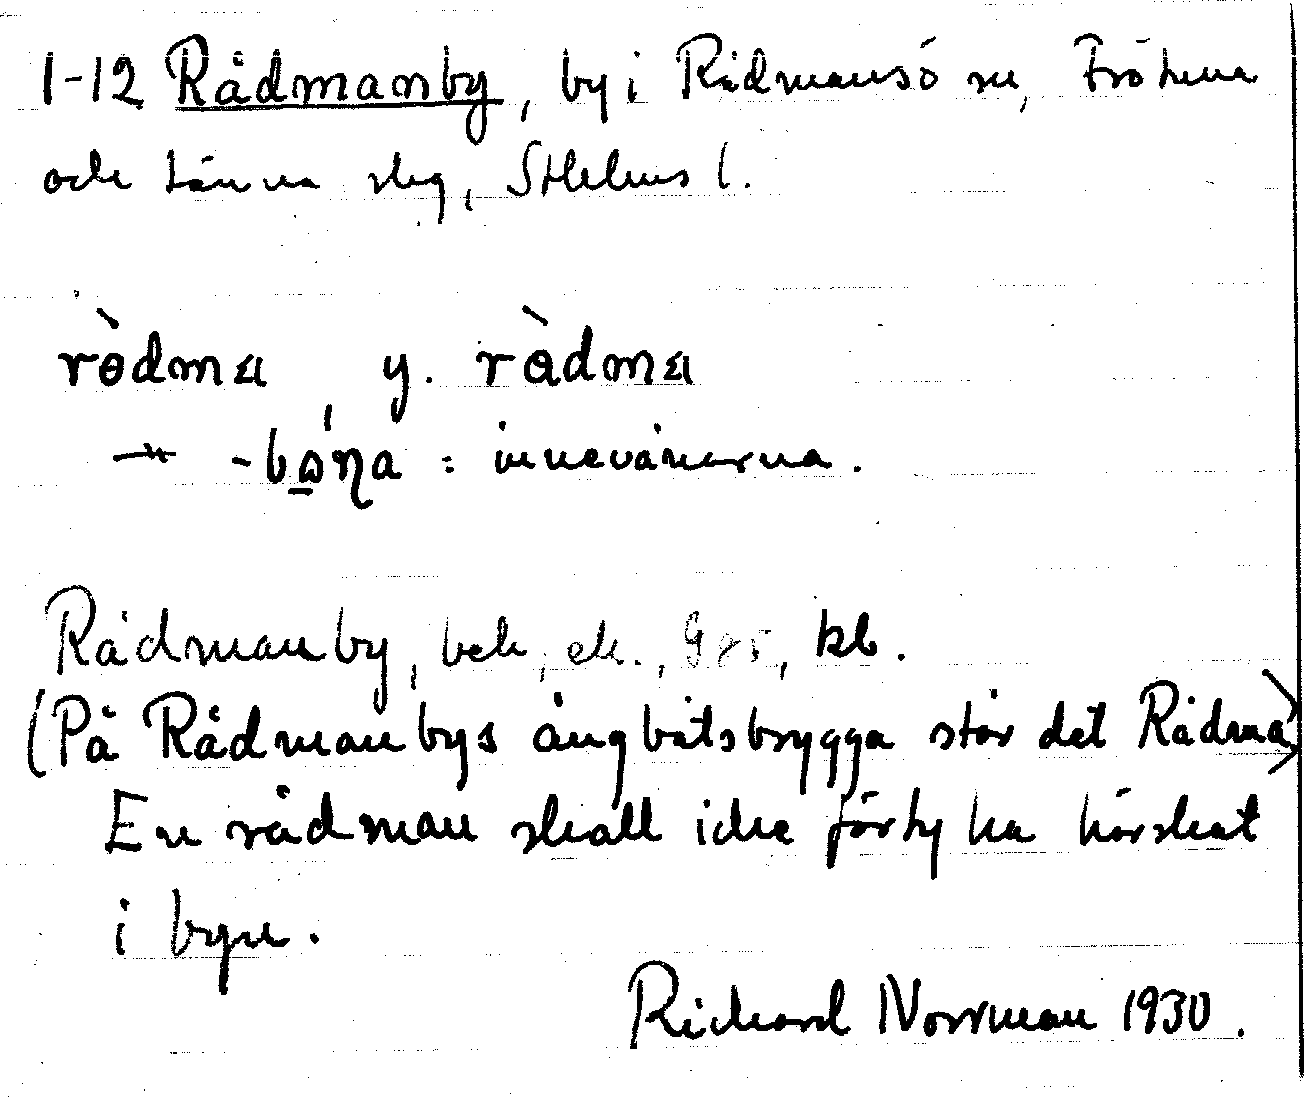 1-12 Rådmanby, by i Rådmansö sn, Fröåkers
och Länna slg, Sthlms l.
ròdma y. ràdma
-bǫ́ŋa : innevånarna.
Rådmanby, bek, ek., G85, kb.
(På Rådmanbys ångbåtsbrygga står det Rådma)
En rådman skall icke förty ha hörskat
i byn.
Richard Norrman 1930.